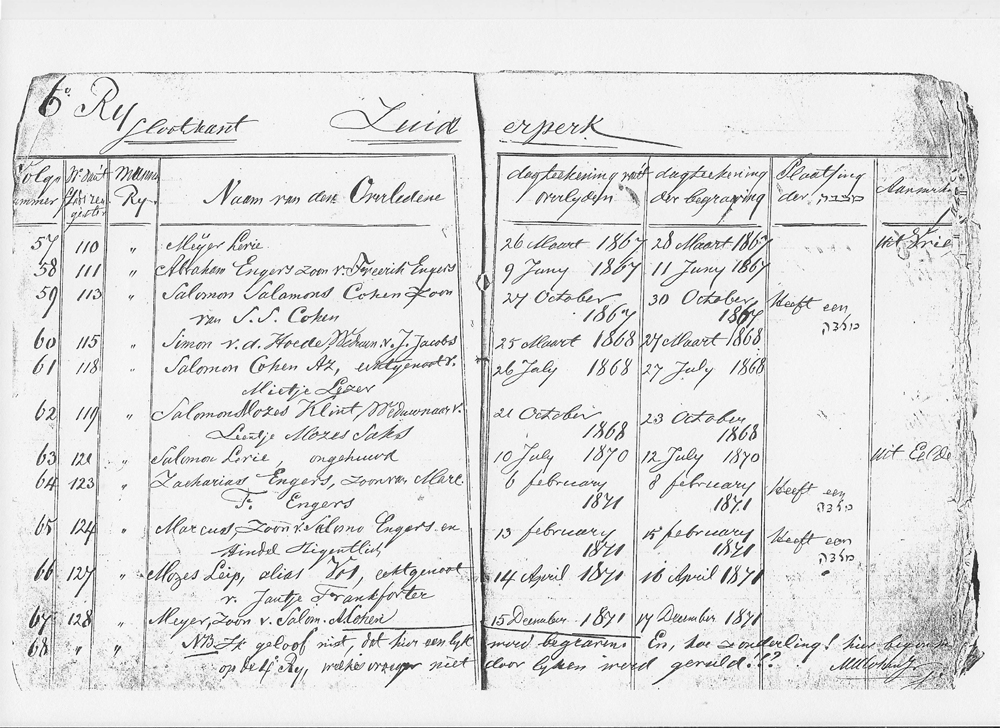 6e Ry
Slootkant Zuiderperk
Volgnummer Mannen Ry. Naam van den Overledene dagteekening van't overlyden dagteekening der begraving Plaatsing der מצבה
57 110 " Meijer Levie 26 Maart 1867 28 Maart 1867
58 111 " Abraham Engers zoon v. Freerik Engers 9 Juny 1867 11 Juny 1867
59 113 " Salomon Salamons Cohen Zoon 27 October 30 October Heeft een
van S. S. Cohen 1867 1867 מצבה
60 115 " Simon v. d. Hoede, v. J. Jacobs 25 Maart 1868 27 Maart 1868
61 118 " Salomon Cohen Az, echtgenoot v. 26 July 1868 27 July 1868
Mietje Lezer
62 119 " Salomon Mozes Klint, Weduwnaar v. 21 October 23 October
Leentje Mozes Saks 1868 1868
63 121 " Salomon Levie, ongehuwd 10 July 1870 12 July 1870 uit Eelde
64 123 " Zacharias Engers, zoon van Marc. 6 february 8 february Heeft een
F. Engers 1871 1871 מצבה
65 124 " Marcus, Zoon v. Salomo Engers en 13 february 15 february Heeft een
Hindel Eigentlich 1871 1871 מצבה
66 127 " Mozes Leip, alias Vos, echtgenoot 14 April 1871 16 April 1871
v. Jantje Frankforter
67 128 " Meyer, Zoon v. Salom. A. Cohen 15 December 1871 17 December 1871
68 " " NB. Ik geloof niet, dat hier een lyk werd begraven. En, hoe zonderling! hier begon
op de 6e Ry, welke vroeger niet door lyken werd gevuld!??